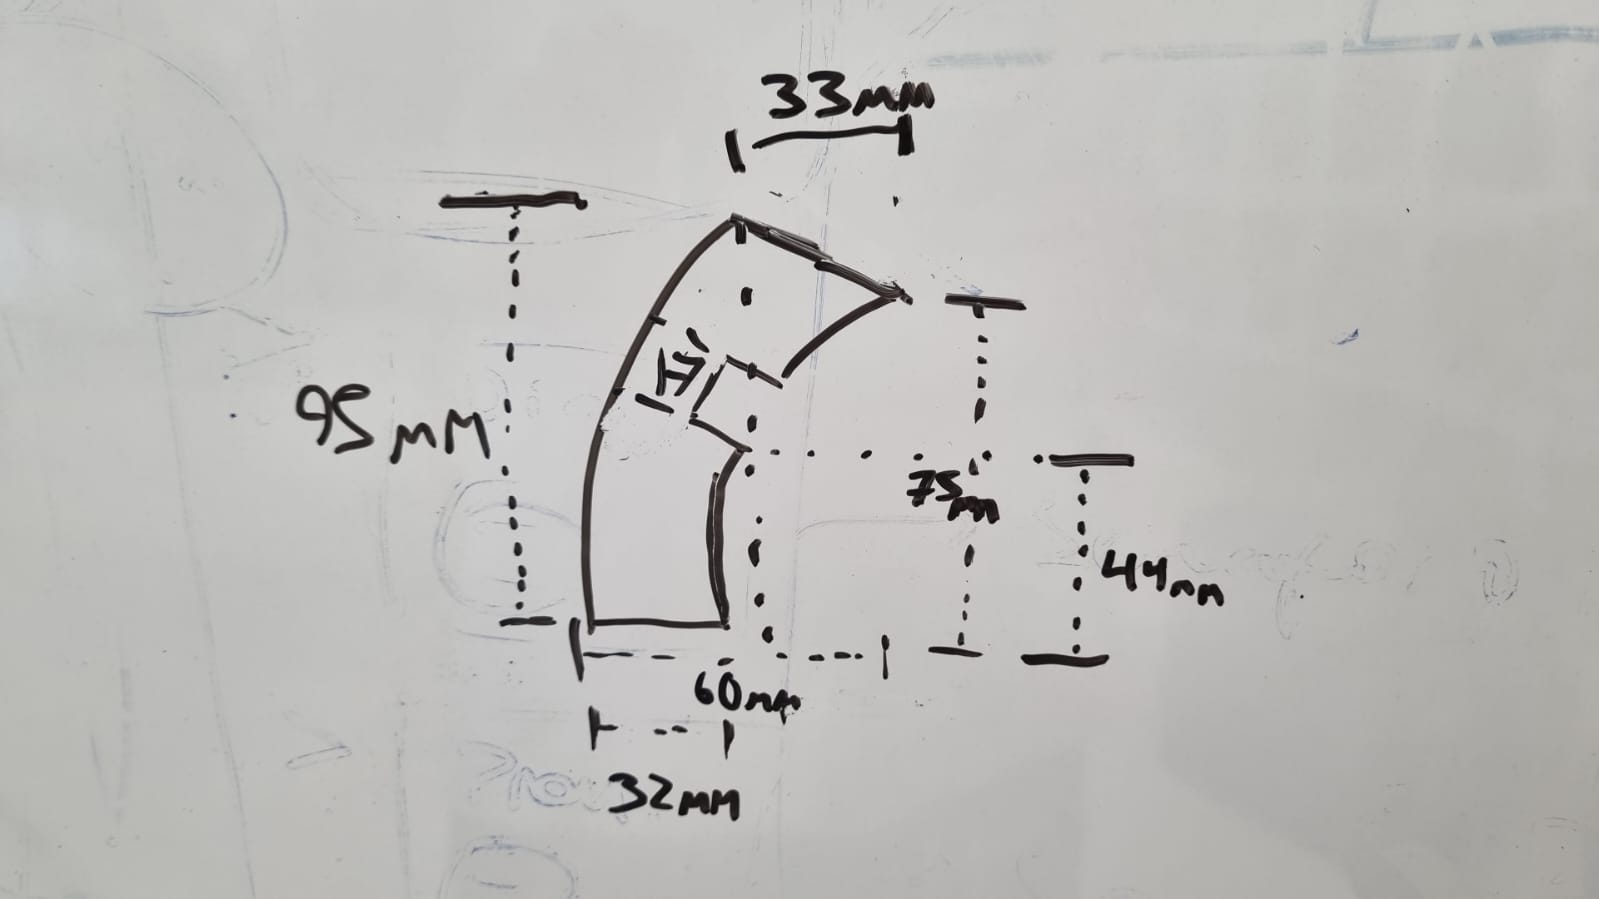 33mm
95mm
75mm
44mm
60mm
32mm